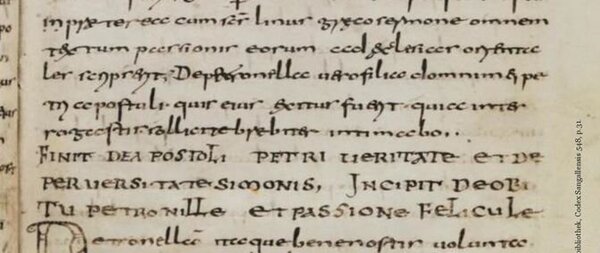 in pixteree cum scr̄ linus greco sermone omnem
textum passionis eorum ad eclesias orienta
les scripsit, De petronella uero filia domni mei pe
tri apostoli quis eius exitus fuerit quia inter
rogastis sollicite breuiter intimabo..
FINIT DEAPOSTOLI PETRI UERITATE ET DE
PERUERSITATE SIMONIS, INCIPIT DEOBI
TU PETRONILLE ET PASSIONE FELICULE
Petronellā itaque bene nostis volunta
bibliothek, Codex Sangallensis 548, p. 31.